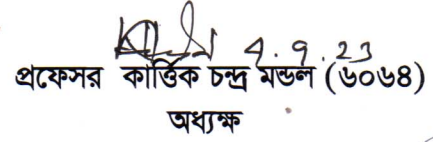 4.9.23
প্রফেসর কার্ত্তিক চন্দ্র মন্ডল (৬০৬৪)
অধ্যক্ষ